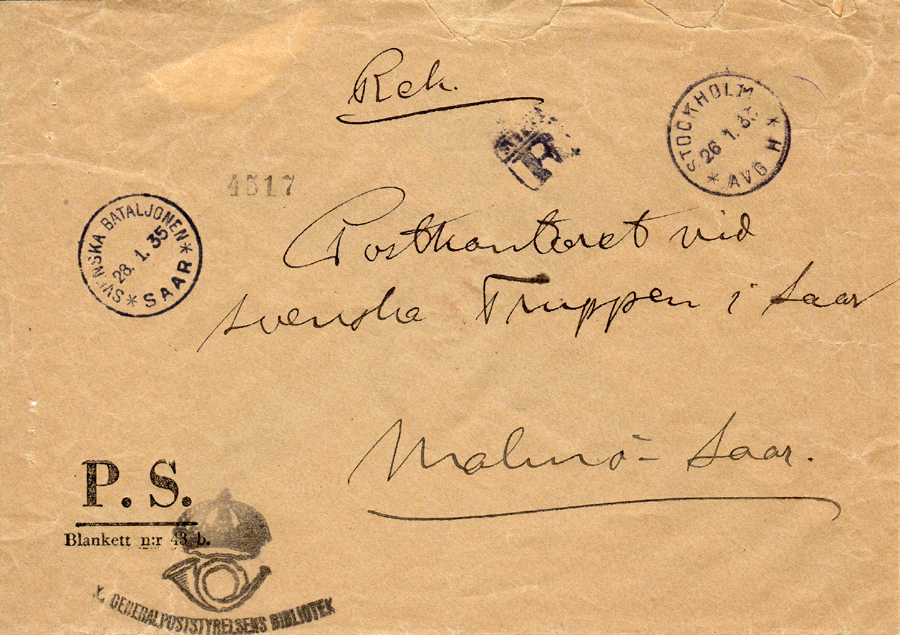 Rek.
R
STOCKHOLM
26 1.35
* AVG H *
4517
SVENSKA BATALJONEN
28.1.35
* SAAR *
Postkontoret vid
svenska Truppen i Saar
Malmö - Saar.
P. S.
Blankett n:r 43 b.
K. GENERALPOSTSTYRELSENS BIBLIOTEK